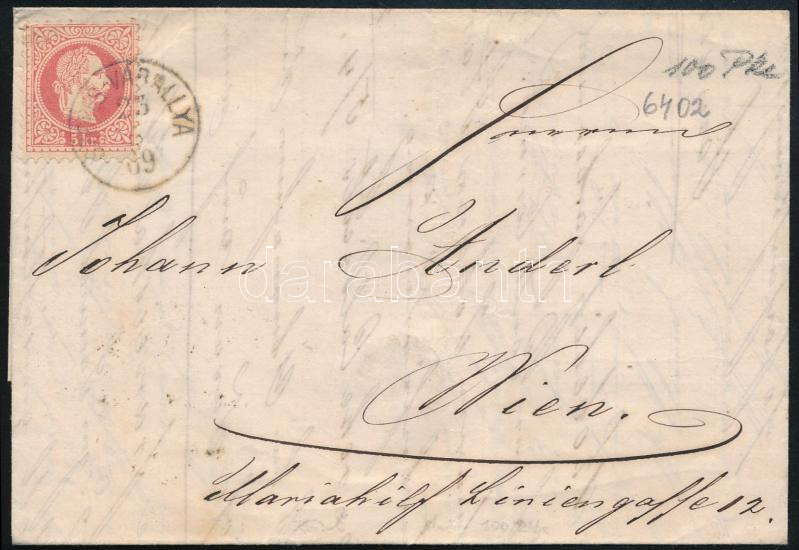 5 kr
VÁRALLYA
23
69
100 Pkt
6402
Johann Anderl
Wien.
Mariahilf Liniengasse 12.
darabanth